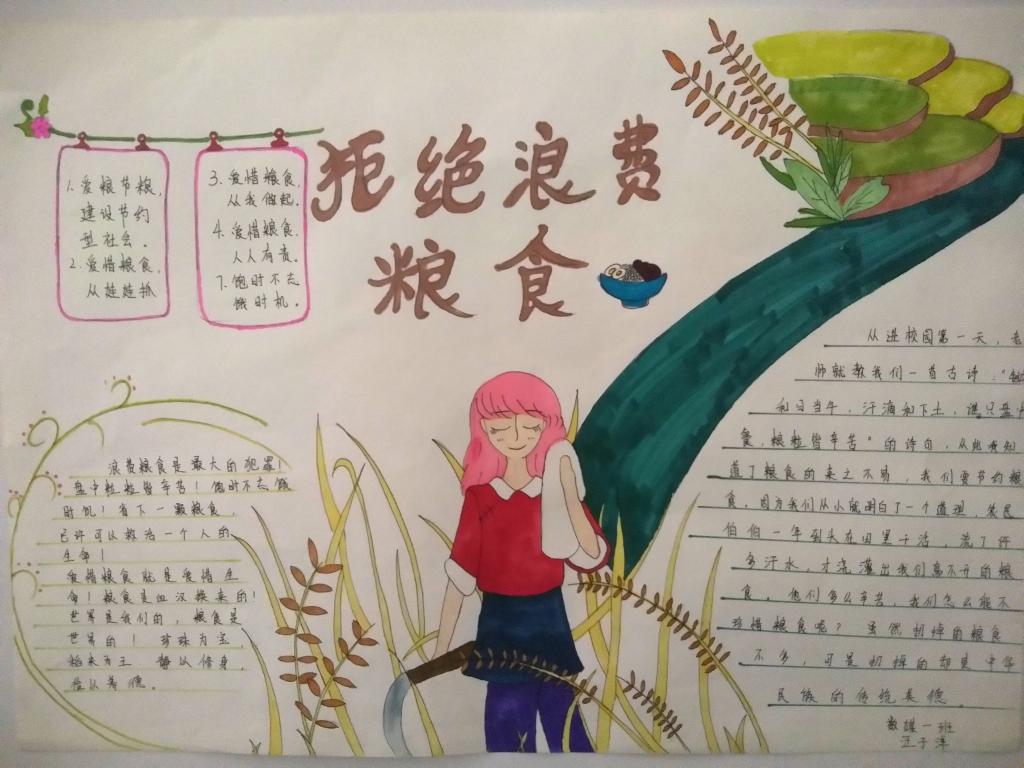 拒绝浪费
粮食
1. 爱粮节粮,
建设节约
型社会。
2. 爱惜粮食,
从娃娃抓
3. 爱惜粮食,
从我做起。
4. 爱惜粮食,
人人有责。
7. 饱时不忘
饿时机。
浪费粮食是最大的犯罪!
盘中粒粒皆辛苦!饱时不忘饿
时饥!省下一颗粮食,
已许可以救活一个人的
生命!
爱惜粮食就是爱惜生
命!粮食是血汉换来的!
世界是我们的,粮食是
世界的!珍珠为宝,
稻米为王 以修身,
以养德。
从进校园第一天,老
师就教我们一首古诗:"锄
和日当午,汗滴和下土,谁只盘中
餐,粮粒皆辛苦"的诗句,从此我知
道了粮食的来之不易,我们要节约粮
食。因为我们从小就明白了一个道理,农民
伯伯一年到头在田里干活,流了许
多汗水,才浇灌出我们离不开的粮
食。他们多么辛苦,我们怎么能不
珍惜粮食呢?虽然扔掉的粮食
不多,可是扔掉的却是中华
民族的传统美德。
一班